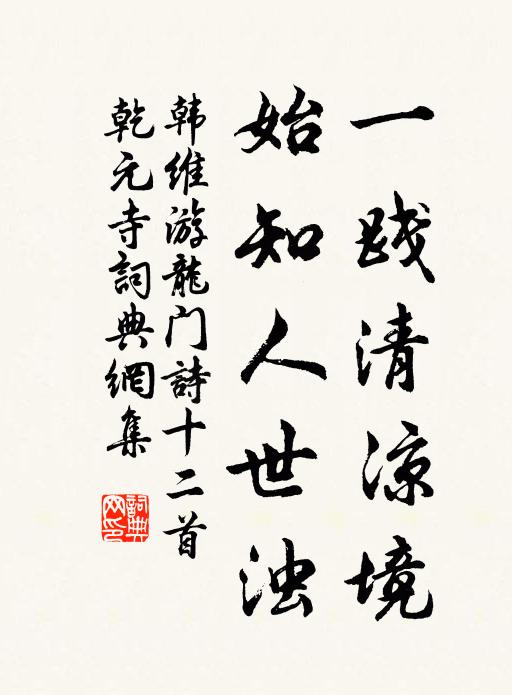 一践清凉境
始知人世浊
韩维游龍门詩十二首
乾元寺詞典網集
詞典
网印